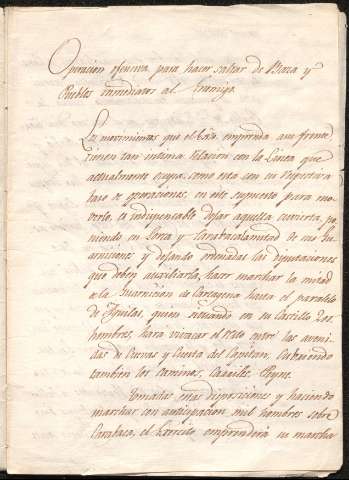 Operacion ofensiva para hacer saltar de Baza y
Pueblos inmediatos al Enemigo.
Los movimientos que el Exto. emprenda a su frente
tienen tan intima relacion con la Linea que
actualmente ocupa, como esta con su respectiva
base de operaciones, en este supuesto para mo-
verlo, es indispensable dejar aquella cuvierta, po-
niendo en Lorca y Caravaca la mitad de sus Gu-
arniciones y dejando ordenadas las disposiciones
que deben auxiliarla, hacer marchar la mitad
de la Guarnicion de Cartagena hasta el paralelo
de Aguilas, quien situando en su Castillo 200
hombres, hará vivacar el resto entre las aveni-
das de Cuevas y Cuesta del Capitan, cubriendo
tambien los caminos,
Tomadas estas disposiciones y haciendo
marchar con anticipacion mil hombres sobre
Caravaca, el Exercito emprenderá su marcha